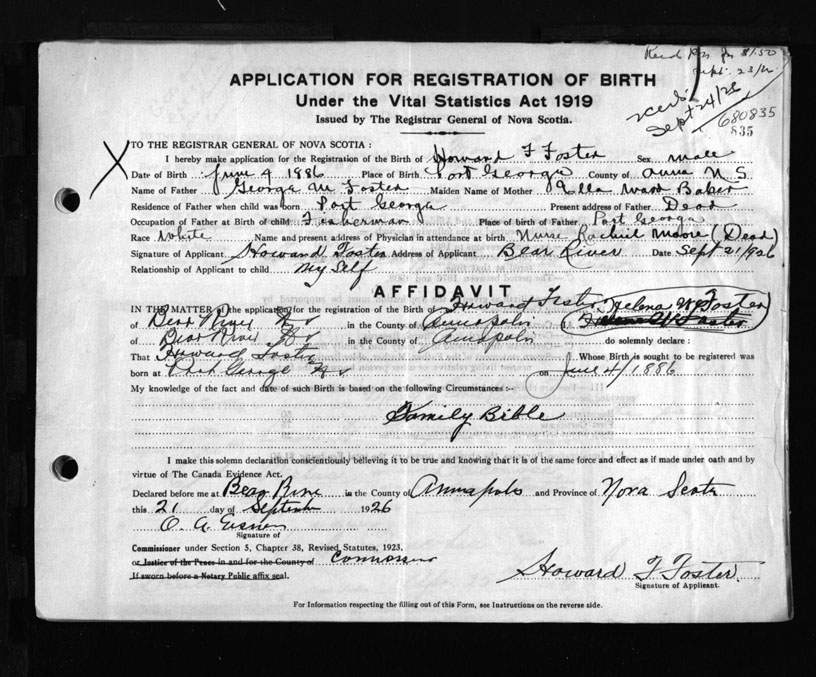 Sept. 23/26
Sept 24/26
680835
835
APPLICATION FOR REGISTRATION OF BIRTH
Under the Vital Statistics Act 1919
Issued by The Registrar General of Nova Scotia.
X
TO THE REGISTRAR GENERAL OF NOVA SCOTIA :
I hereby make application for the Registration of the Birth of Howard F Foster Sex male
Date of Birth June 4 1886 Place of Birth Port George County of Anna N.S.
Name of Father George M Foster Maiden Name of Mother Ella Ward Baker
Residence of Father when child was born Port George Present address of Father Dead
Occupation of Father at Birth of child Fisherman Place of birth of Father Port George
Race White Name and present address of Physician in attendance at birth Nurse Moore (Dead)
Signature of Applicant Howard Foster Address of Applicant Bear River Date Sept 21/926
Relationship of Applicant to child My Self
AFFIDAVIT
IN THE MATTER of the application for the registration of the Birth of Howard Foster Helena W Foster
of Bear River N S in the County of Annapolis Helena W Foster
of Bear River N S in the County of Annapolis do solemnly declare :
That Howard Foster Whose Birth is sought to be registered was
born at Port George N S on June 4/1886
My knowledge of the fact and date of such Birth is based on the following Circumstances :-
Family Bible
I make this solemn declaration conscientiously believing it to be true and knowing that it is of the same force and effect as if made under oath and by
virtue of The Canada Evidence Act.
Declared before me at Bear River in the County of Annapolis and Province of Nova Scotia
this 21 day of September 1926
O. A.
Signature of
Commissioner under Section 5, Chapter 38, Revised Statutes, 1923.
or Justice of the Peace in and for the County of
If sworn before a Notary Public affix seal.
Howard F Foster
Signature of Applicant.
For Information respecting the filling out of this Form, see Instructions on the reverse side.